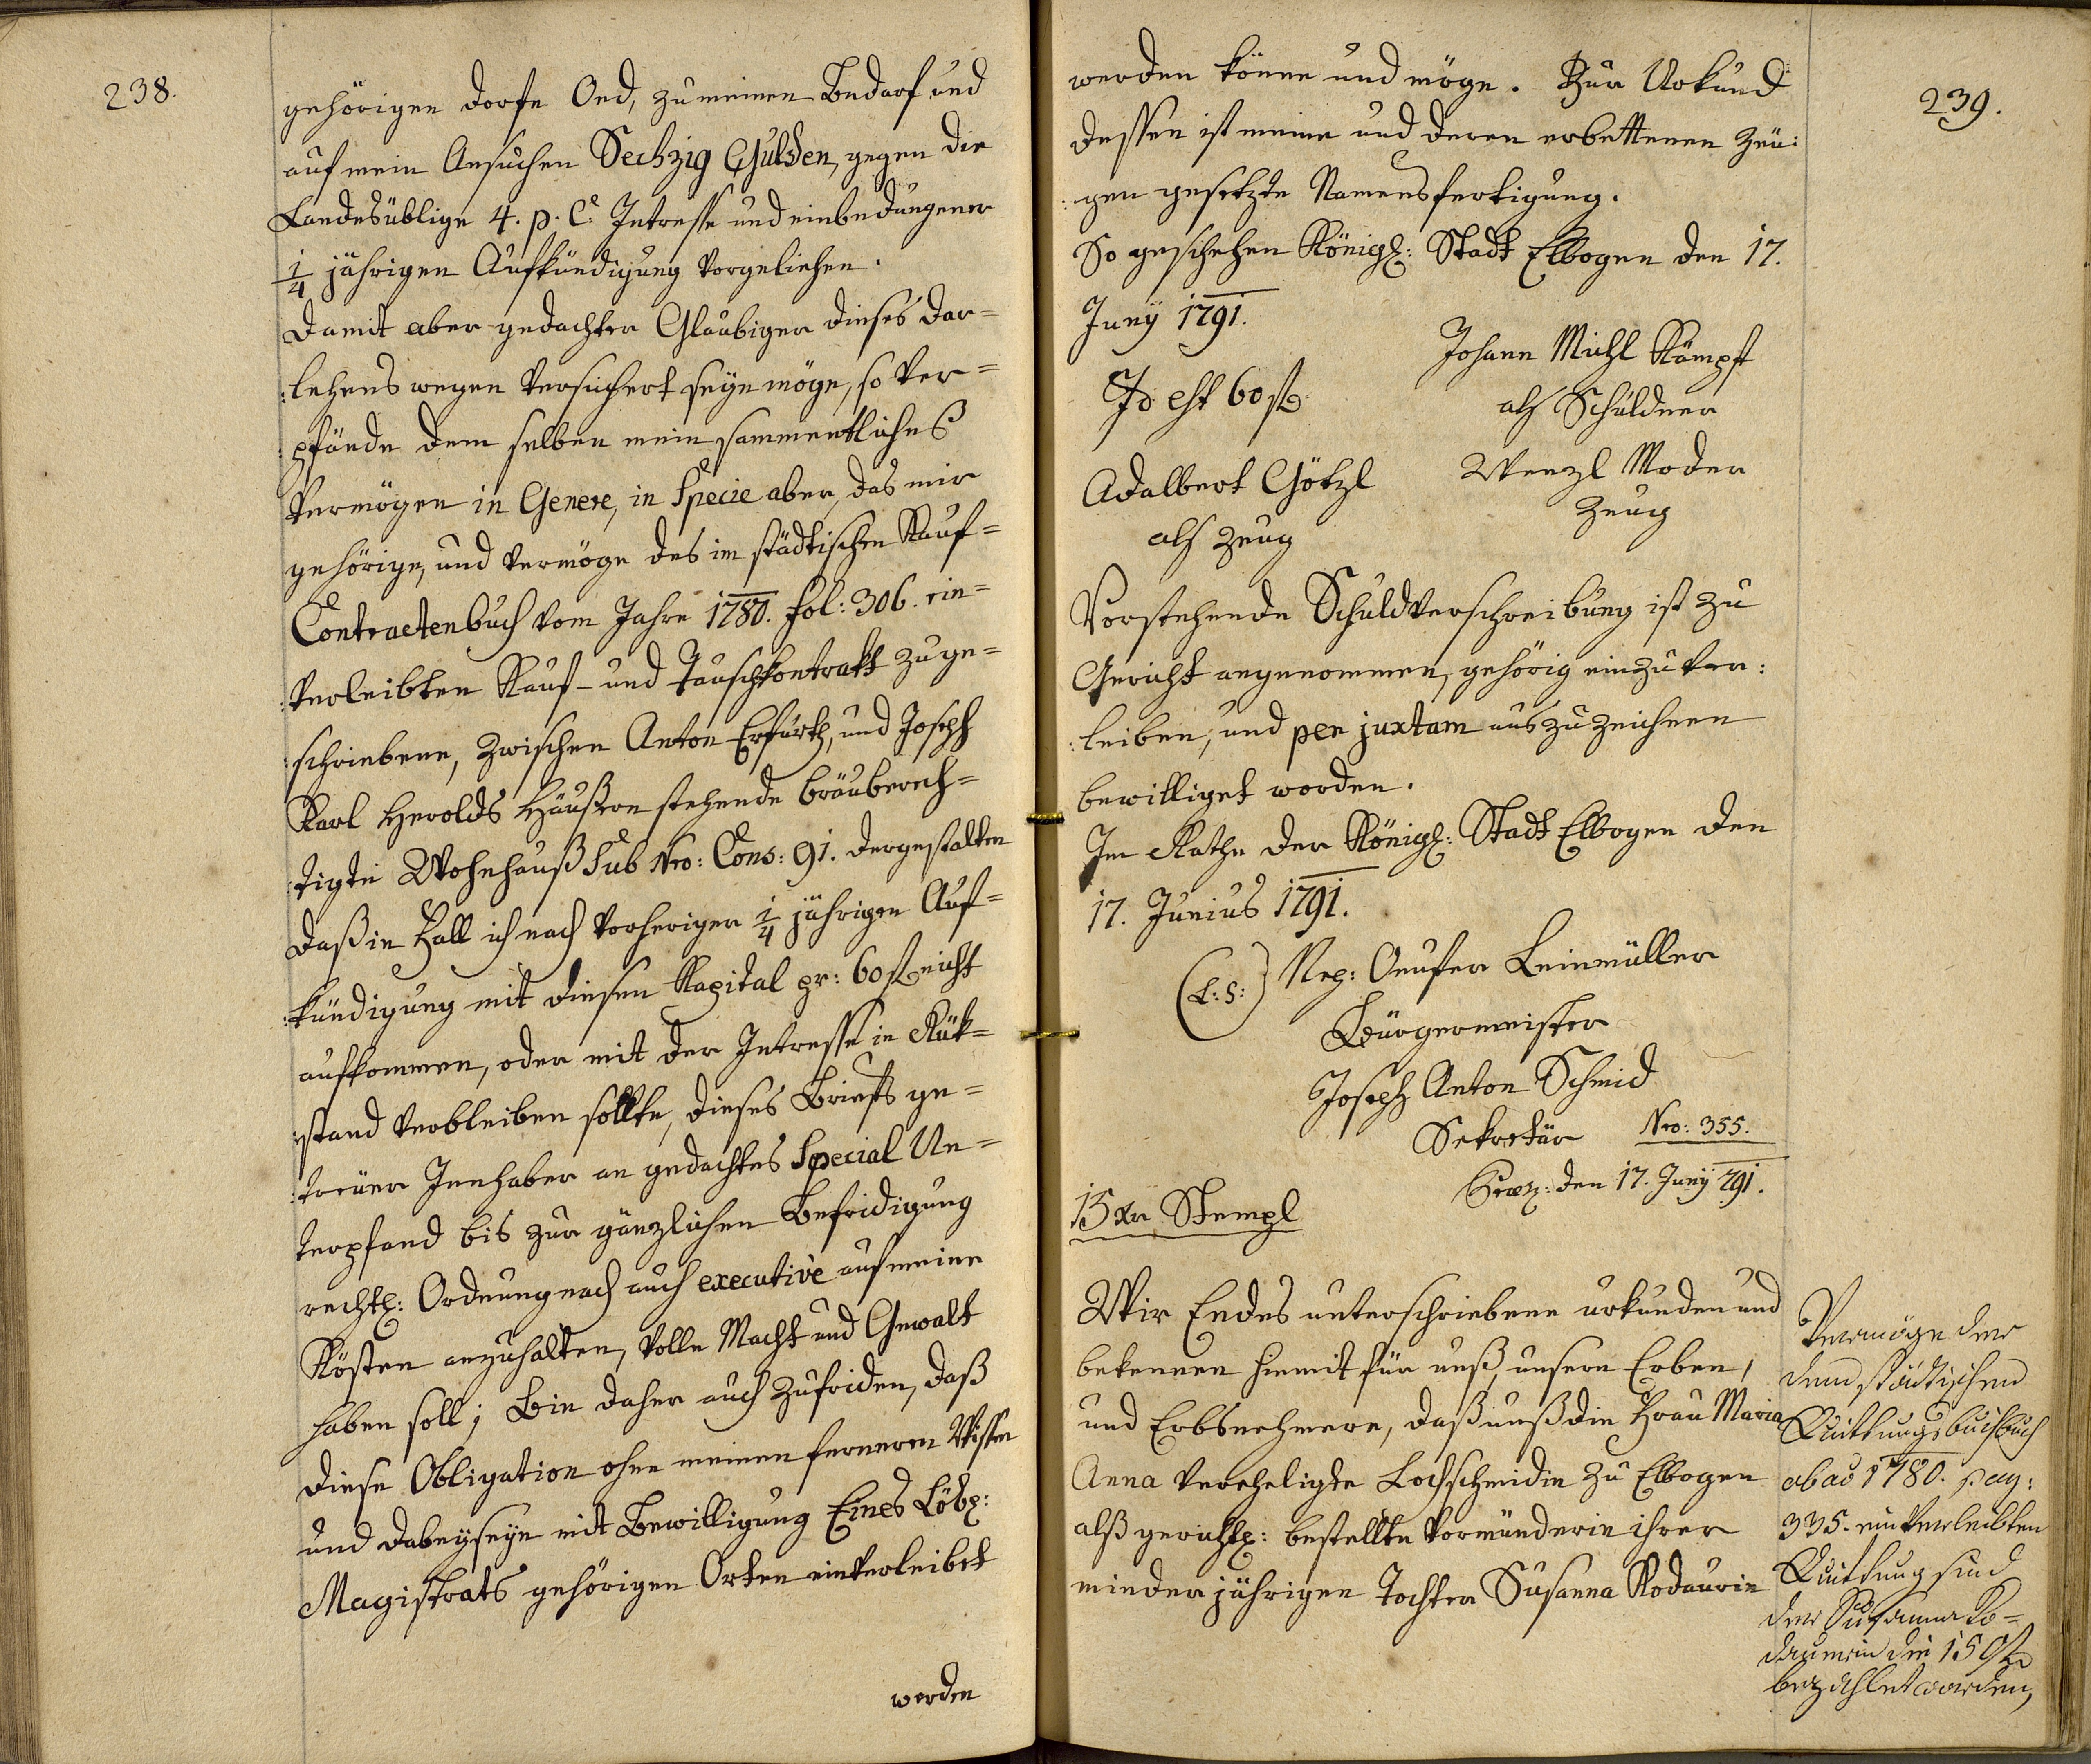 238.
gehörigen dorfe Oed, zu meinen Bedarf und
auf mein Ansuchen Sechzig Gulden, gegen die
Landesüblige 4. p. C. Intresse und einbedungener
1/4 jährigen Aufkündigung vorgeliehen.
Damit aber gedachter Glaubiger dieses Dar=
:lehens wegen versichert seyn möge, so ver=
:pfände dem selben mein sammentliches
Vermögen in Genere, in Specie aber, das mir
gehörige, und vermöge des im städtischen Kauf=
Contractenbuch vom Jahre 1780. fol: 306. ein=
:verleibten Kauf- und Tauschkontrakt zuge=
:schriebene, zwischen Anton Erfurth, und Joseph
Karl Herolds Häußern stehende bräuberech=
:tigte Wohnhauß Sub Nro: Cons: 91. dergestalten
daß in Fall ich nach vorheriger 1/4 jährigen Auf=
:kündigung mit diesen Kapital pr: 60 fl nicht
aufkommen, oder mit der Intresse in Rük=
:stand verbleiben sollte, dieses Briefs ge=
:treüer Innhaber an gedachtes Special Un=
terpfand bis zur gänzlichen Befridigung
rechtl: Ordnung nach auch executive auf meine
Kösten anzuhalten, volle Macht und Gewalt
haben soll; Bin daher auch zufriden, daß
diese Obligation ohne meinen fernern Wissen
und dabeyseyn mit Bewilligung Eines Löbl:
Magistrats gehörigen Orten einverleibet
werden
239.
werden könne und möge. Zur Urkund
dessen ist meine und deren erbettenen Zeu:
:gen gesetzte Namensfertigung.
So geschehen Königl: Stadt Elbogen den 17.
Juny 1791.
Johann Michl Kämpf
Id est 60 fl
als Schuldner
Adalbert Götzl
Wenzl Moder
als Zeug
Zeug
Vorstehende Schuldverschreibung ist zu
Gericht angenommen, gehörig einzuver:
:leiben, und per juxtam auszuzeichnen
bewilliget worden.
Im Rathe der Königl: Stadt Elbogen den
17. Junius 1791.
(L: S:) Nep: Leinmüller
Bürgermeister
Joseph Anton Schmid
Sekretär Nro: 355.
Præs: den 17. Juny 791.
15 xr Stempl
Wir Endes unterschriebene urkunden und
bekennen hiemit für unß, unsere Erben,
und Erbsnehmere, daß unß die Frau Maria
Anna vereheligte Lochschmidin zu Elbogen
alß gerichtl: bestellte Vormünderin ihrer
minderjährigen Tochter Susanna Kodaurin
Vermöge der
dem städtischen
Quittungsbuch
ab ao 1780. pag:
335. einverleibten
Quittung sind
der Susanna Ko=
daurin die 150 fl
bezahlet worden,